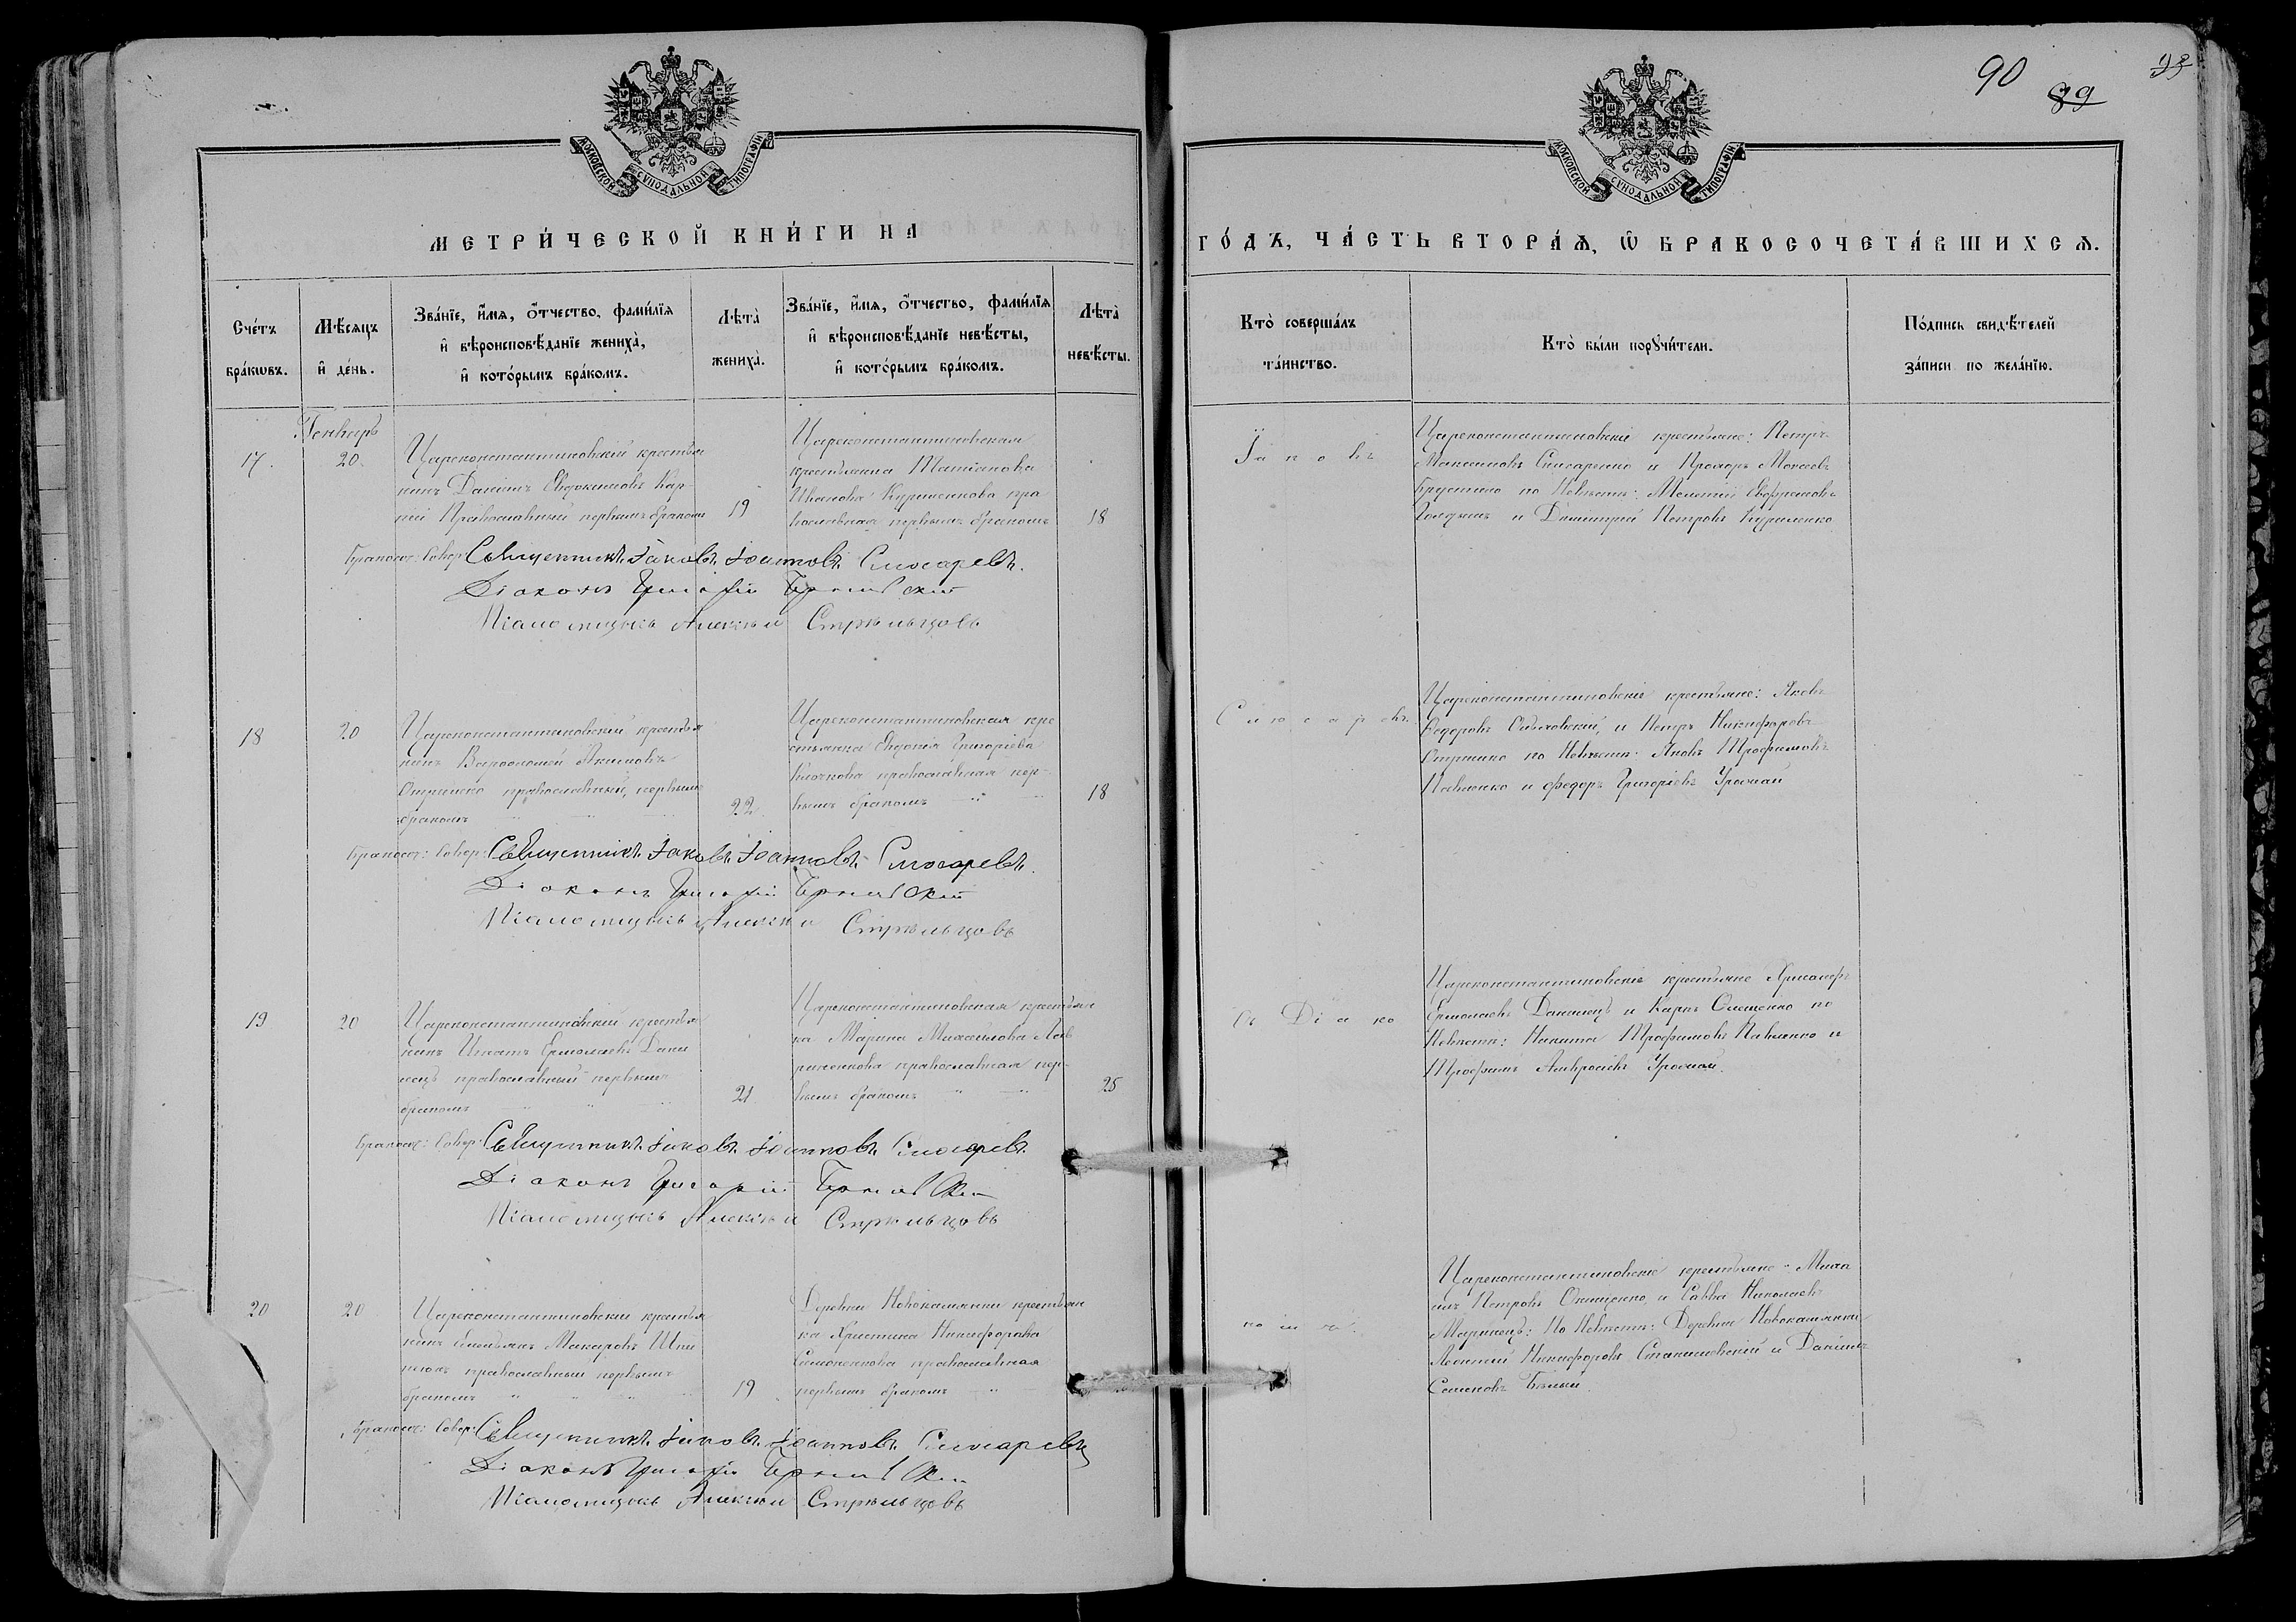 90
89
МОСКОВСКОЙ СѴНОДАЛЬНОЙ ТИПОГРАФІИ
МОСКОВСКОЙ СѴНОДАЛЬНОЙ ТИПОГРАФІИ
МЕТРИ́ЧЕСКОЙ КНИ́ГИ НА
ГО́ДЪ, ЧА́СТЬ ВТОРА́Ѧ, Ѽ БРАКОСОЧЕТА́ВШИХСѦ.
Сче́тъ бра́кѡвъ.
Мѣ́сяцъ и҆ де́нь.
Зва́нїе, и҆́мѧ, ѻ҆́тчество, фами́лїѧ
и҆ вѣроисповѣ́данїе жениха̀,
и҆ кото́рымъ бра́комъ.
Лѣта̀ жениха̀.
Зва́нїе, и҆́мѧ, ѻ҆́тчество, фами́лїѧ
и҆ вѣроисповѣ́данїе невѣ́сты,
и҆ кото́рымъ бра́комъ.
Лѣта̀ невѣ́сты.
Кто̀ соверша́лъ
та́инство.
Кто̀ бы́ли порꙋчи́тели.
По́дпись свидѣ́телей
за́писи по жела́нїю.
17.
Генварь
20.
Цареконстантиновскій крестья
нинъ Даніилъ Евдокимовъ Кар-
пій Православный первымъ бракомъ
19
Цареконстантиновская
крестьянка Татіанова
Иванова Куриленкова пра
вославная первымъ бракомъ
18
Іаковъ
Цареконстантиновскіе крестьяне: Петръ
Максимовъ Слисаренко и Прохоръ Моисеевъ
по Невѣстѣ: Мелетій Евфремовъ
Голубъ и Димитрій Петровъ Куриленко
Бракосоч: Совер: Священникъ Іаковъ Іоанновъ Слюсаревъ.
Діаконъ Григорій
Псаломщикъ Алексѣй Стрѣльцовъ
18
20
Цареконстантиновскій крестья
нинъ Варфоломей Акимовъ
православный, первымъ
бракомъ
22
Цареконстантиновская кре
стьянка Евдокія Григоріева
Клочкова православная пер-
вымъ бракомъ
18
Слюсаревъ
Цареконстантиновскіе крестьяне: Яковъ
Федоровъ и Петръ Никифоровъ
по Невѣстѣ: Яковъ Трофимовъ
Павленко и Федоръ Григоріевъ Урожай
Бракосоч: Совер: Священникъ Іаковъ Іоанновъ Слюсаревъ.
Діаконъ Григорій
Псаломщикъ Алексѣй Стрѣльцовъ
19
20
Цареконстантиновскій крестья
нинъ Игнатъ Ермолаевъ Дани
лецъ православный первымъ
бракомъ
21
Цареконстантиновская крестьян
ка Марина Михайлова Лав
риненкова православная пер-
вымъ бракомъ
25
съ Діако
Цареконстантиновскіе крестьяне Хрисанфъ
Ермолаевъ Данилецъ и Карпъ Онищенко по
Невѣстѣ: Никита Трофимовъ Павленко и
Трофимъ Амвросіевъ Урожай.
Бракосоч: Совер: Священникъ Іаковъ Іоанновъ Слюсаревъ
Діаконъ Григорій
Псаломщикъ Алексѣй Стрѣльцовъ
20
20
Цареконстантиновскій крестья
нинъ Емельянъ Макаровъ Шпи
православный первымъ
бракомъ
19
Деревни Новокаменки крестьян
ка Христина Никифорова
Симоненкова православная
первымъ бракомъ
номъ.
Цареконстантиновскіе крестьяне: Миха
илъ Петровъ Онищенко, и Савва Николаевъ
Маринецъ: По Невѣстѣ: Деревни Новокаменки
Леонтій Никифоровъ и Даніилъ
Семеновъ Бѣлый.
Бракосоч: Совер: Священникъ Іаковъ Іоанновъ Слюсаревъ
Діаконъ Григорій
Псаломщикъ Алексѣй Стрѣльцовъ